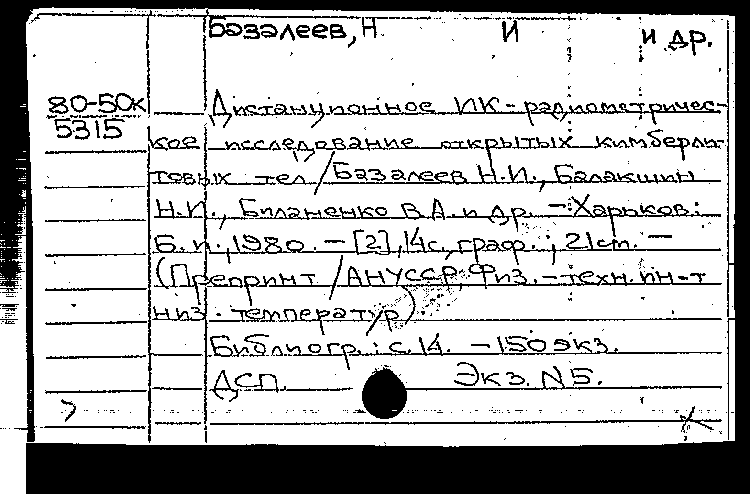 Базалеев, Н. И и др.
80-50к
5315
Дистанционное ИК-радиометричес-
кое исследование открытых кимберли-
товых тел / Базалеев Н.И., Балакшин
Н.И., Биланенко В.А. и др. - Харьков:
Б.и., 1980. - [2], 14с, граф.; 21 см. -
(Препринт / АН УССР, Физ.-техн. ин-т
низ. температур).
Библиогр.: с. 14. - 150 экз.
ДСП. Экз. N5.